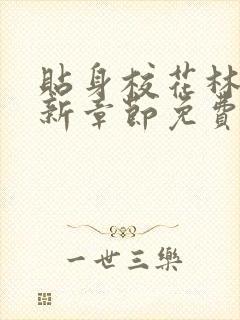 貼身校花林
新章節免費
一世三樂